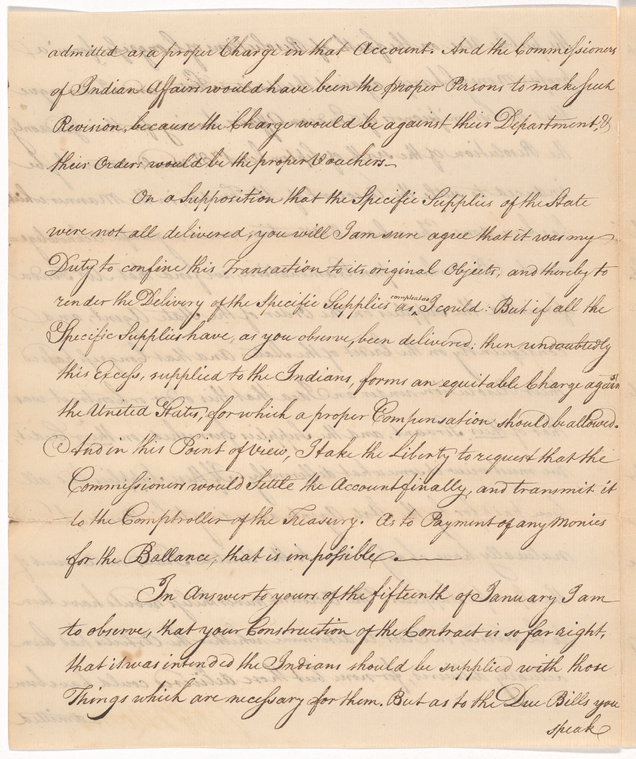 admitted as a proper Charge in that Account. And the Commissioners
of Indian Affairs would have been the proper Persons to make such
Revision, because the Charge would be against their Department, &
their Orders would be the proper Vouchers.
On a Supposition that the Specific Supplies of the State
were not all delivered, you will I am sure agree that it was my
Duty to confine this Transaction to its original Objects, and thereby to
render the Delivery of the Specific Supplies as compleat as I could: But if all the
Specific Supplies have, as you observe, been delivered; then undoubtedly
this Excess, supplied to the Indians, forms an equitable Charge against
the United States, for which a proper Compensation should be allowed.
And in this Point of view, I take the Liberty to request that the
Commissioners would Settle the Account finally, and transmit it
to the Comptroller of the Treasury. As to Payment of any Monies
for the Ballance, that is impossible.
In Answer to yours of the fifteenth of January I am
to observe, that your Construction of the Contract is so far right,
that it was intended the Indians should be supplied with those
Things which are necessary for them. But as to the Due Bills you
speak